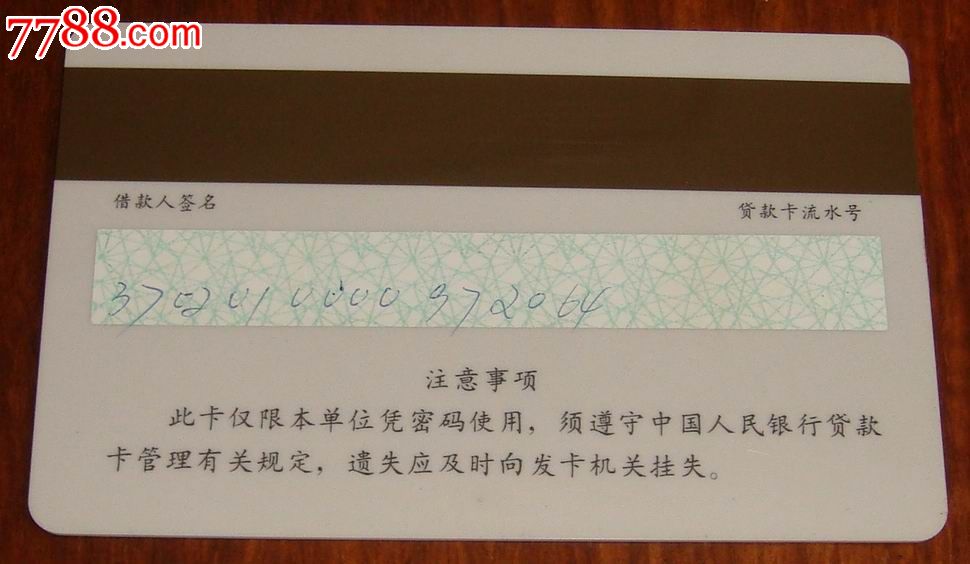 7788.com
借款人签名
贷款卡流水号
3702010000972064
注意事项
此卡仅限本单位凭密码使用，须遵守中国人民银行贷款
卡管理有关规定，遗失应及时向发卡机关挂失。